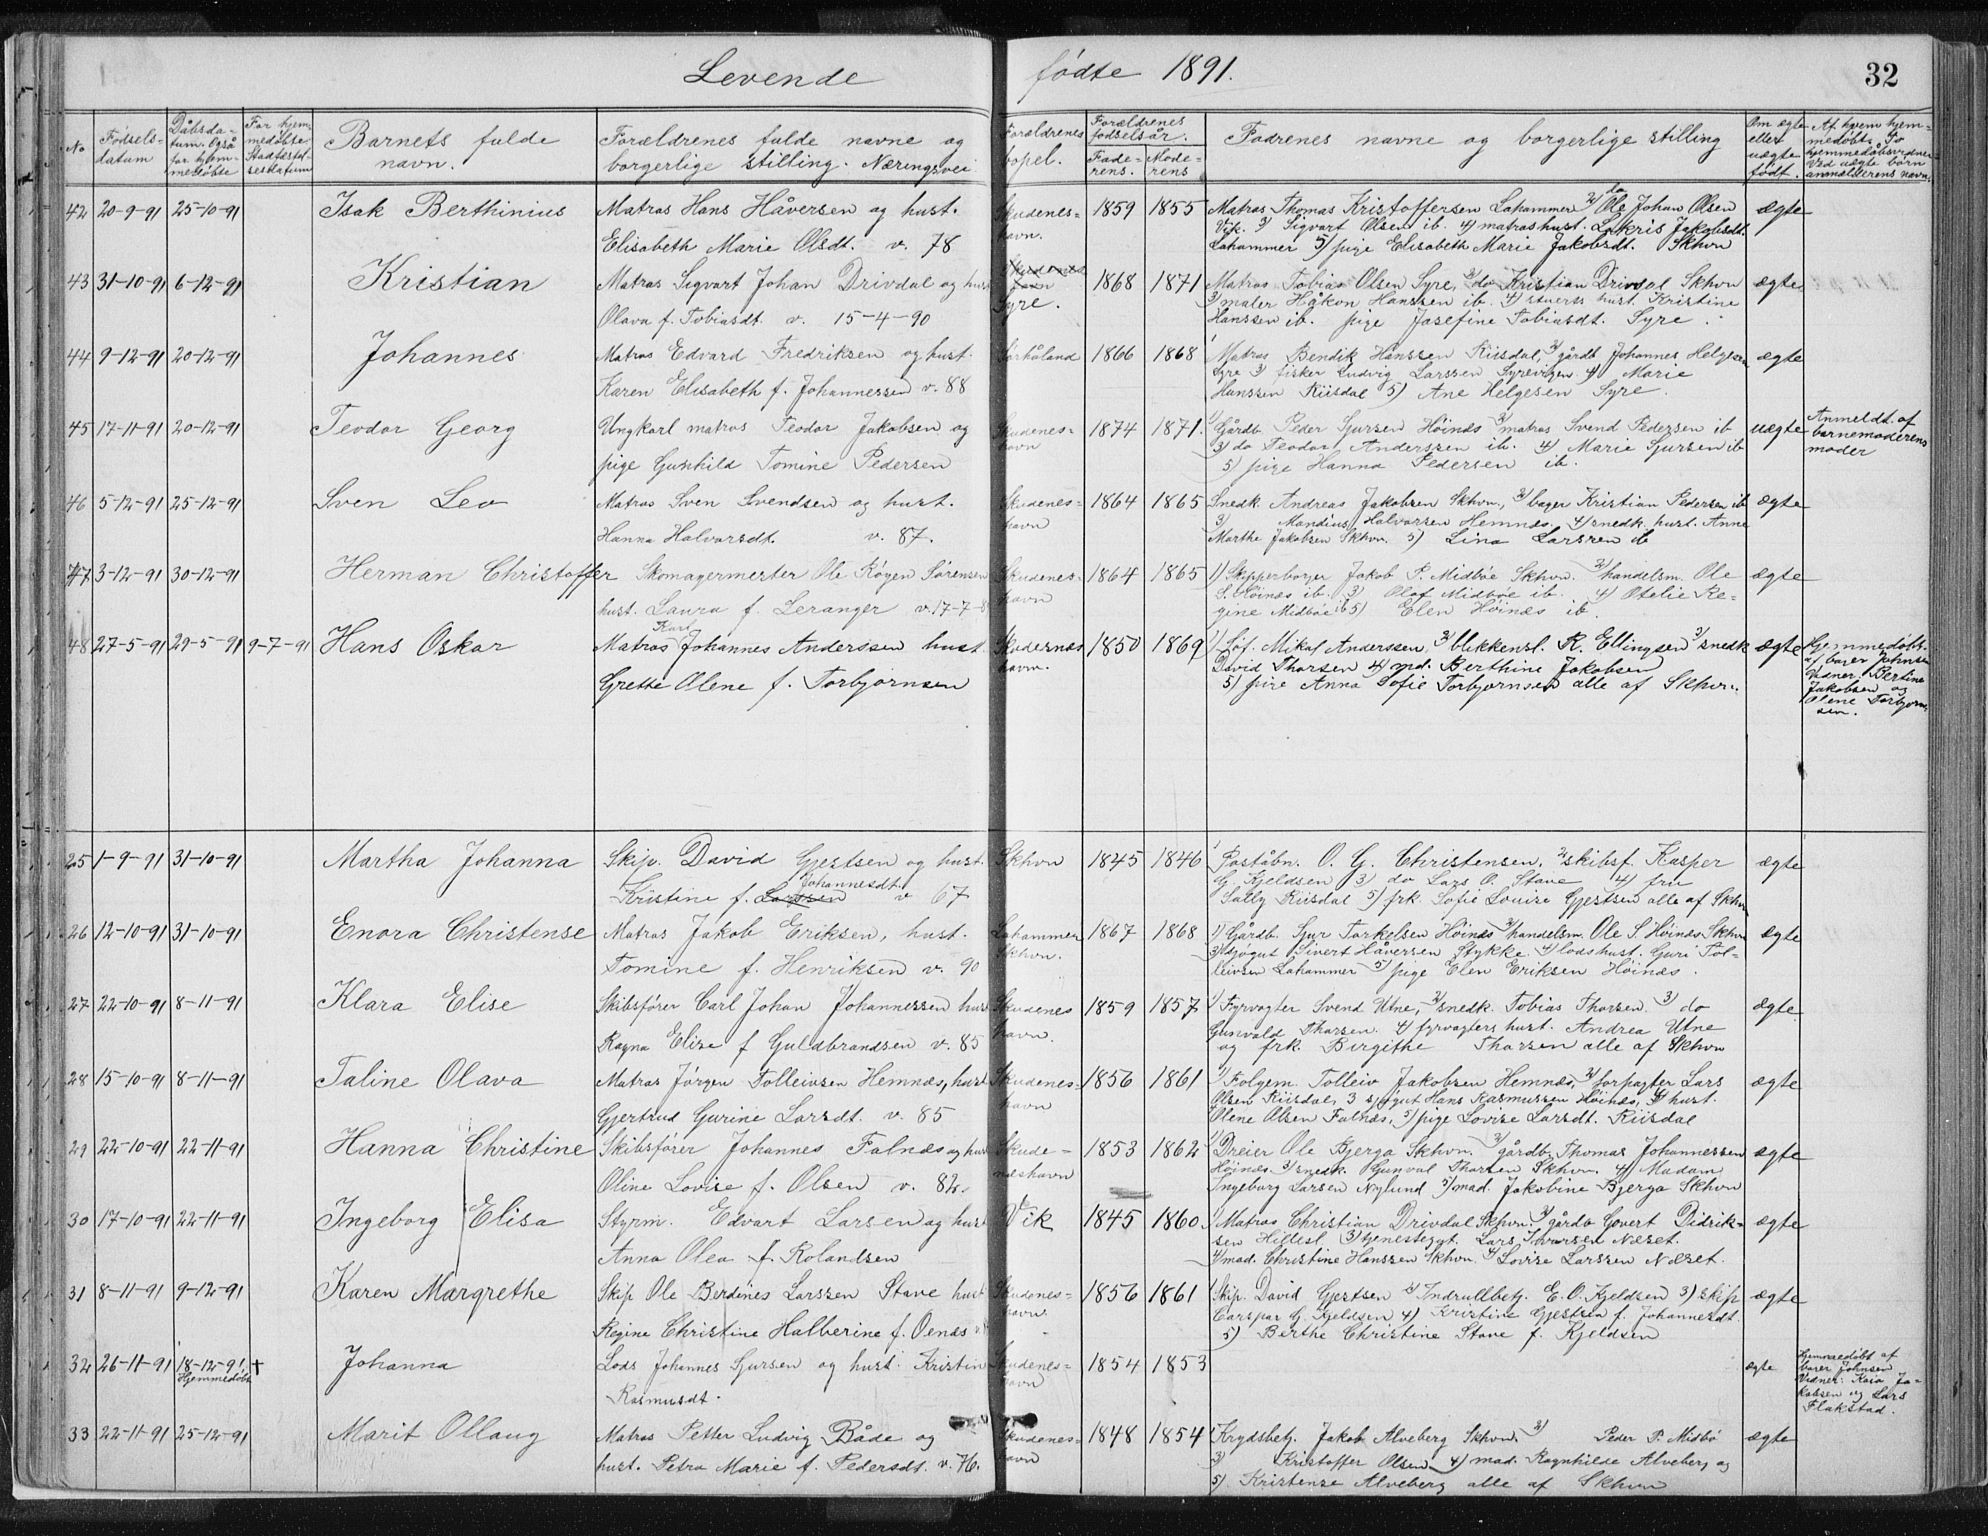 Levende fødte 1891.
32
No
Fødsels-
datum
Dåbsda-
tum. Også
for hjem-
medøbte
For hjem-
medøbte
Stadfæstel-
sesdatum
Barnets fulde
navn.
Forældrenes fulde navne og
borgerlige stilling. Næringsvei
Forældrenes
bopel.
Forældrenes
fødselsår.
Fade-
rens.
Mode-
rens
Fadrenes navne og borgerlige stilling
Om ægte
eller
uægte
født.
Af hvem hjem-
medøbt. To
hjemmedåbsvidner
Ved uægte børn
anmelderens navn.
42 20-9-91 25-10-91 Isak Berthinius Matros Hans Håversen og hust. Skudenes- 1859 1855 Matros Thomas Kristoffersen Lahammer 2/ do Ole Johan Olsen ægte
Elisabeth Marie Olsdt. v. 78 havn. Vik. 3/ Sigvart Olsen ib. 4) matroshust. Lakris Jakobsdt.
Lahammer 5) pige Elisabeth Marie Jakobsdt. Skhvn
43 31-10-91 6-12-91 Kristian Matros Sigvart Johan Drivdal og hust Skudenes 1868 1871 Matros Tobias Olsen Syre, 2/ do Kristian Drivdal Skhvn ægte
havn Syre. 3) maler Håkon Hanssen ib. 4) stuerts hust. Kristine
Olava f. Tobiasdt. v. 15-4-90 Hanssen ib. pige Josefine Tobiasdt. Syre.
44 9-12-91 20-12-91 Johannes Matros Edvard Fredriksen og hust. Sørhåland 1866 1868 Matros Bendik Hanssen Riisdal, 2/ gårdb Johannes Helgesen ægte
Syre 3) fisker Ludvig Larssen Syrevigen 4) Marie
Karen Elisabeth f. Johannessen v. 88 Hanssen Riisdal 5) Ane Helgesen Syre.
45 17-11-91 20-12-91 Teodor Georg Ungkarl matros Teodor Jakobsen og Skudenes- 1874 1871. 1) Gårdb. Peder Sjursen Høinæs 2/ matros Svend Pedersen ib uægte Anmeldt af
havn 3) do Teodor Anderssen ib. 4) Marie Sjursen ib barnemoderens
pige Gunhild Tomine Pedersen 5) pige Hanna Pedersen ib. moder
46 5-12-91 25-12-91 Sven Leo Matros Sven Svendsen og hust. Skudenes- 1864 1865 Snedk. Andreas Jakobsen Skhvn, 2/ bager Kristian Pedersen ib ægte
havn 3) Mandius Halvorsen Hemnæs. 4) snedk. hust. Anne
Hanna Halvorsdt. v. 87. Marthe Jakobsen Skhvn. 5) Lina Larssen ib
47 3-12-91 30-12-91 Herman Christoffer Skomagermester Ole Røgen Sørensen Skudenes- 1864 1865 1) Skipperborger Jakob P. Midbøe Skhvn. 2/ handelsm. Ole ægte
havn S. Høinæs ib. 3) Olaf Midbøe ib. 4) Otelie Re-
hust. Laura f. Leranger v. 17-7-8 gine Midbøe ib 5) Elen Høinæs ib.
48 27-5-91 29-5-91 9-7-91 Hans Oskar Matros Karl Johannes Anderssen hust Skudenes 1850 1869 1) Løf. Mikal Anderssen, 2/ blikkensl. R. Ellingsen 3/ snedk ægte Hjemmedøbt
havn. David Thorsen 4) md. Berthine Jakobsen af barer Johnsen
Grethe Olene f. Torbjørnsen 5) pige Anna Sofie Torbjørnsen alle af Skhvn. Vidner: Bertine
Jakobsen og
Olene Torbjørn-
sen.
25 1-9-91 31-10-91 Martha Johanna Skip. David Gjertsen og hust. Skhvn 1845 1846 1 Poståbn. O. G. Christensen, 2/ skibsf. Kasper ægte
G. Kjeldsen 3) do Lars O. Stave 4) fru
Kristine f. Larssen Johannesdt. v 67 Sally Riisdal 5) frk. Sofie Lovise Gjertsen alle af Skhvn
26 12-10-91 31-10-91 Enora Christense Matros Jakob Eriksen, hust. Lahammer 1867 1868 1) Gårdb. Sjur Torkelsen Høinæs 2/ handelsm. Ole S. Høinæs Skhvn ægte
Skhvn. 3) sjøgut Sivert Håversen Stykke 4) lodshust. Guri Tol-
Tomine f. Henriksen v. 90 leivsen Lahammer 5) pige Elen Eriksen Høinæs.
27 22-10-91 8-11-91 Klara Elise Skibsfører Carl Johan Johannessen hust Skudenes 1859 1857 1/ Fyrvogter Svend Utne, 2/ snedk. Tobias Thorsen 3) do ægte
havn. Gunvald Thorsen. 4) fyrvogters hust. Andrea Utne
Ragna Elise f Guldbrandsen v. 85 og frk. Birgithe Thorsen alle af Skhvn
28 15-10-91 8-11-91 Taline Olava Matros Jørgen Tolleivsen Hemnæs, hust Skudenes- 1856 1861 1/ Folgem. Tolleiv Jakobsen Hemnæs, 2/ forpagter Lars ægte
havn Olsen Riisdal, 3 sjøgut Hans Rasmussen Høinæs, 4/ hust.
Gjertrud Gurine Larsdt. v. 85 Olene Olsen Falnæs, 5) pige Lovise Larsdt. Riisdal
29 22-10-91 22-11-91 Hanna Christine Skibsfører Johannes Falnæs og hust Skude- 1853 1862 1/ Dreier Ole Bjerga Skhvn. 2/ gårdb. Thomas Johannessen ægte
neshavn Høinæs. 3/ snedk. Gunval Thorsen Skhvn. 4/ Madam
Oline Lovise f. Olsen v. 82. Ingeborg Larsen Nylund 5/ mad. Jakobine Bjerga Skhvn
30 17-10-91 22-11-91 Ingeborg Elisa Styrm. Edvart Larsen og hust Vik 1845 1860 1/ Matros Christian Drivdal Skhvn. 2/ gårdb Govert Didrik- ægte
sen Hillesl. 3) tjenestegt. Lars Ivarsen Næset.
Anna Olea f. Rolandsen 4/ mad. Christine Hanssen Skhvn. 5/ Lovise Larssen Næset.
31 8-11-91 9-12-91 Karen Margrethe Skip Ole Berdines Larssen Stave hust Skudenes- 1856 1861 1 Skip. David Gjertsen 2/ Indrullbetj. E. O. Kjeldsen 3) skip ægte
havn. Carspar G. Kjeldsen 4) Kristine Gjertsen f. Johannesdt.
Regine Christine Halberine f. Oenæs 5) Berthe Christine Stave f. Kjeldsen
32 26-11-91 18-12-91 † Johanna Lods Johannes Sjursen og hust. Kristin Skudenes- 1854 1853 ægte Hjemmedøbt af
Hjemmedøbt Rasmusdt. havn barer Johnsen
Vidner: Kaia Ja-
kobsen og Lars
Flakstad.
33 22-11-91 25-12-91 Marit Ollaug Matros Petter Ludvig Både og Skudenes- 1848 1854 1/ Krydsbetj. Jakob Alveberg Skhvn. 2) Peder P. Midbø ægte
havn 3) Kristoffer Olsen 4) mad. Ragnhilde Alveberg og
hust. Petra Marie f. Pedersdt. v. 76. 5) Kristense Alveberg alle af Skhvn